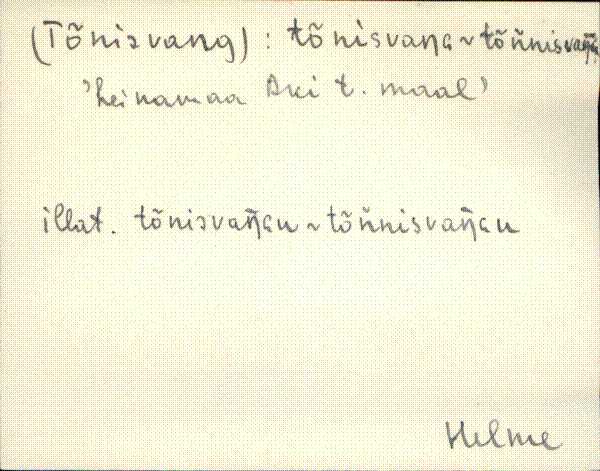 (Tõnisvang) : tõnisvaŋa ~ tõńnisvaŋ̄a
'heinamaa Aki t. maal'
illat. tõnisvaŋ̄au ~ tõńnisvaŋ̄au
Helme